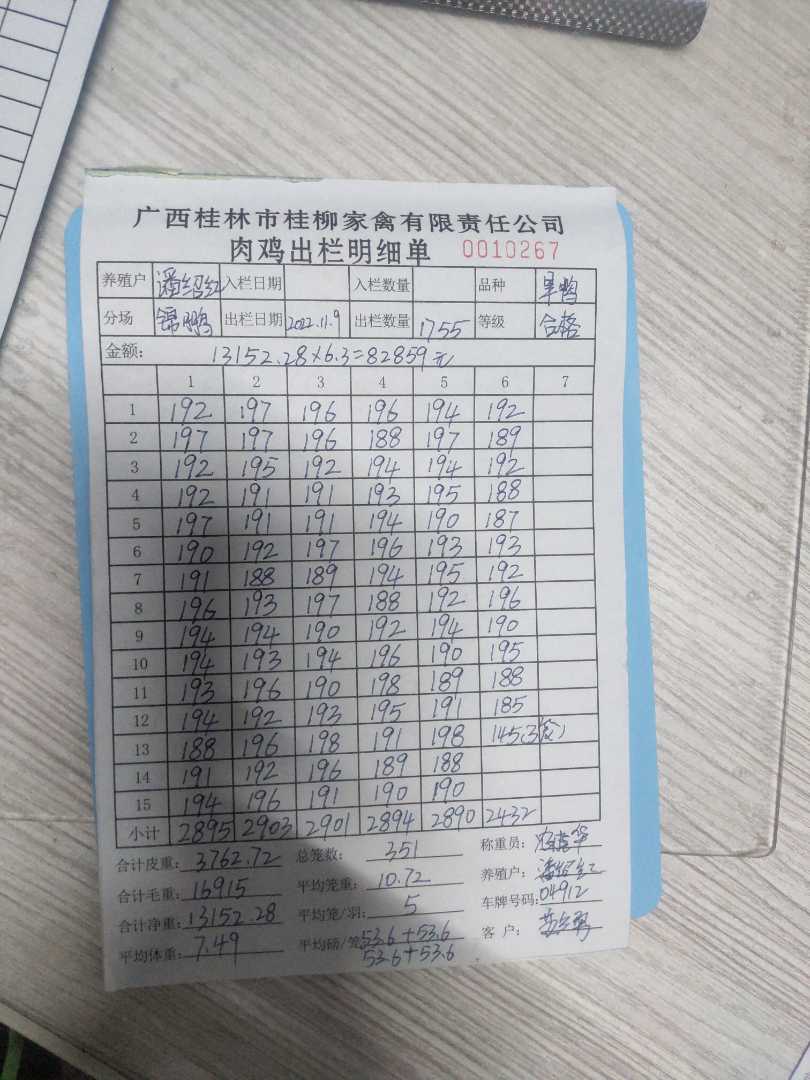 广西桂林市桂柳家禽有限责任公司
肉鸡出栏明细单 0010267
养殖户 潘绍红 入栏日期 入栏数量 品种 旱鸭
分场 锦鹏 出栏日期 2022.11.9 出栏数量 1755 等级 合格
金额: 13152.28×6.3=82859元
1 2 3 4 5 6 7
1 192 197 196 196 194 192
2 197 197 196 188 197 189
3 192 195 192 194 194 192
4 192 191 191 193 195 188
5 197 191 191 194 190 187
6 190 192 197 196 193 193
7 191 188 189 194 195 192
8 196 193 197 188 192 196
9 194 194 190 192 194 190
10 194 193 194 196 190 195
11 193 196 190 198 189 188
12 194 192 193 195 191 185
13 188 196 198 191 198 145(3
14 191 192 196 189 188
15 194 196 191 190 190
小计 2895 2903 2901 2894 2890 2432
合计皮重: 3762.72 总笼数: 351 称重员:
合计毛重: 16915 平均笼重: 10.72 养殖户: 潘绍红
合计净重: 13152.28 平均笼/羽: 5 车牌号码: 04912
平均体重: 7.49 平均磅/笼 53.6+53.6 客户:
53.6+53.6